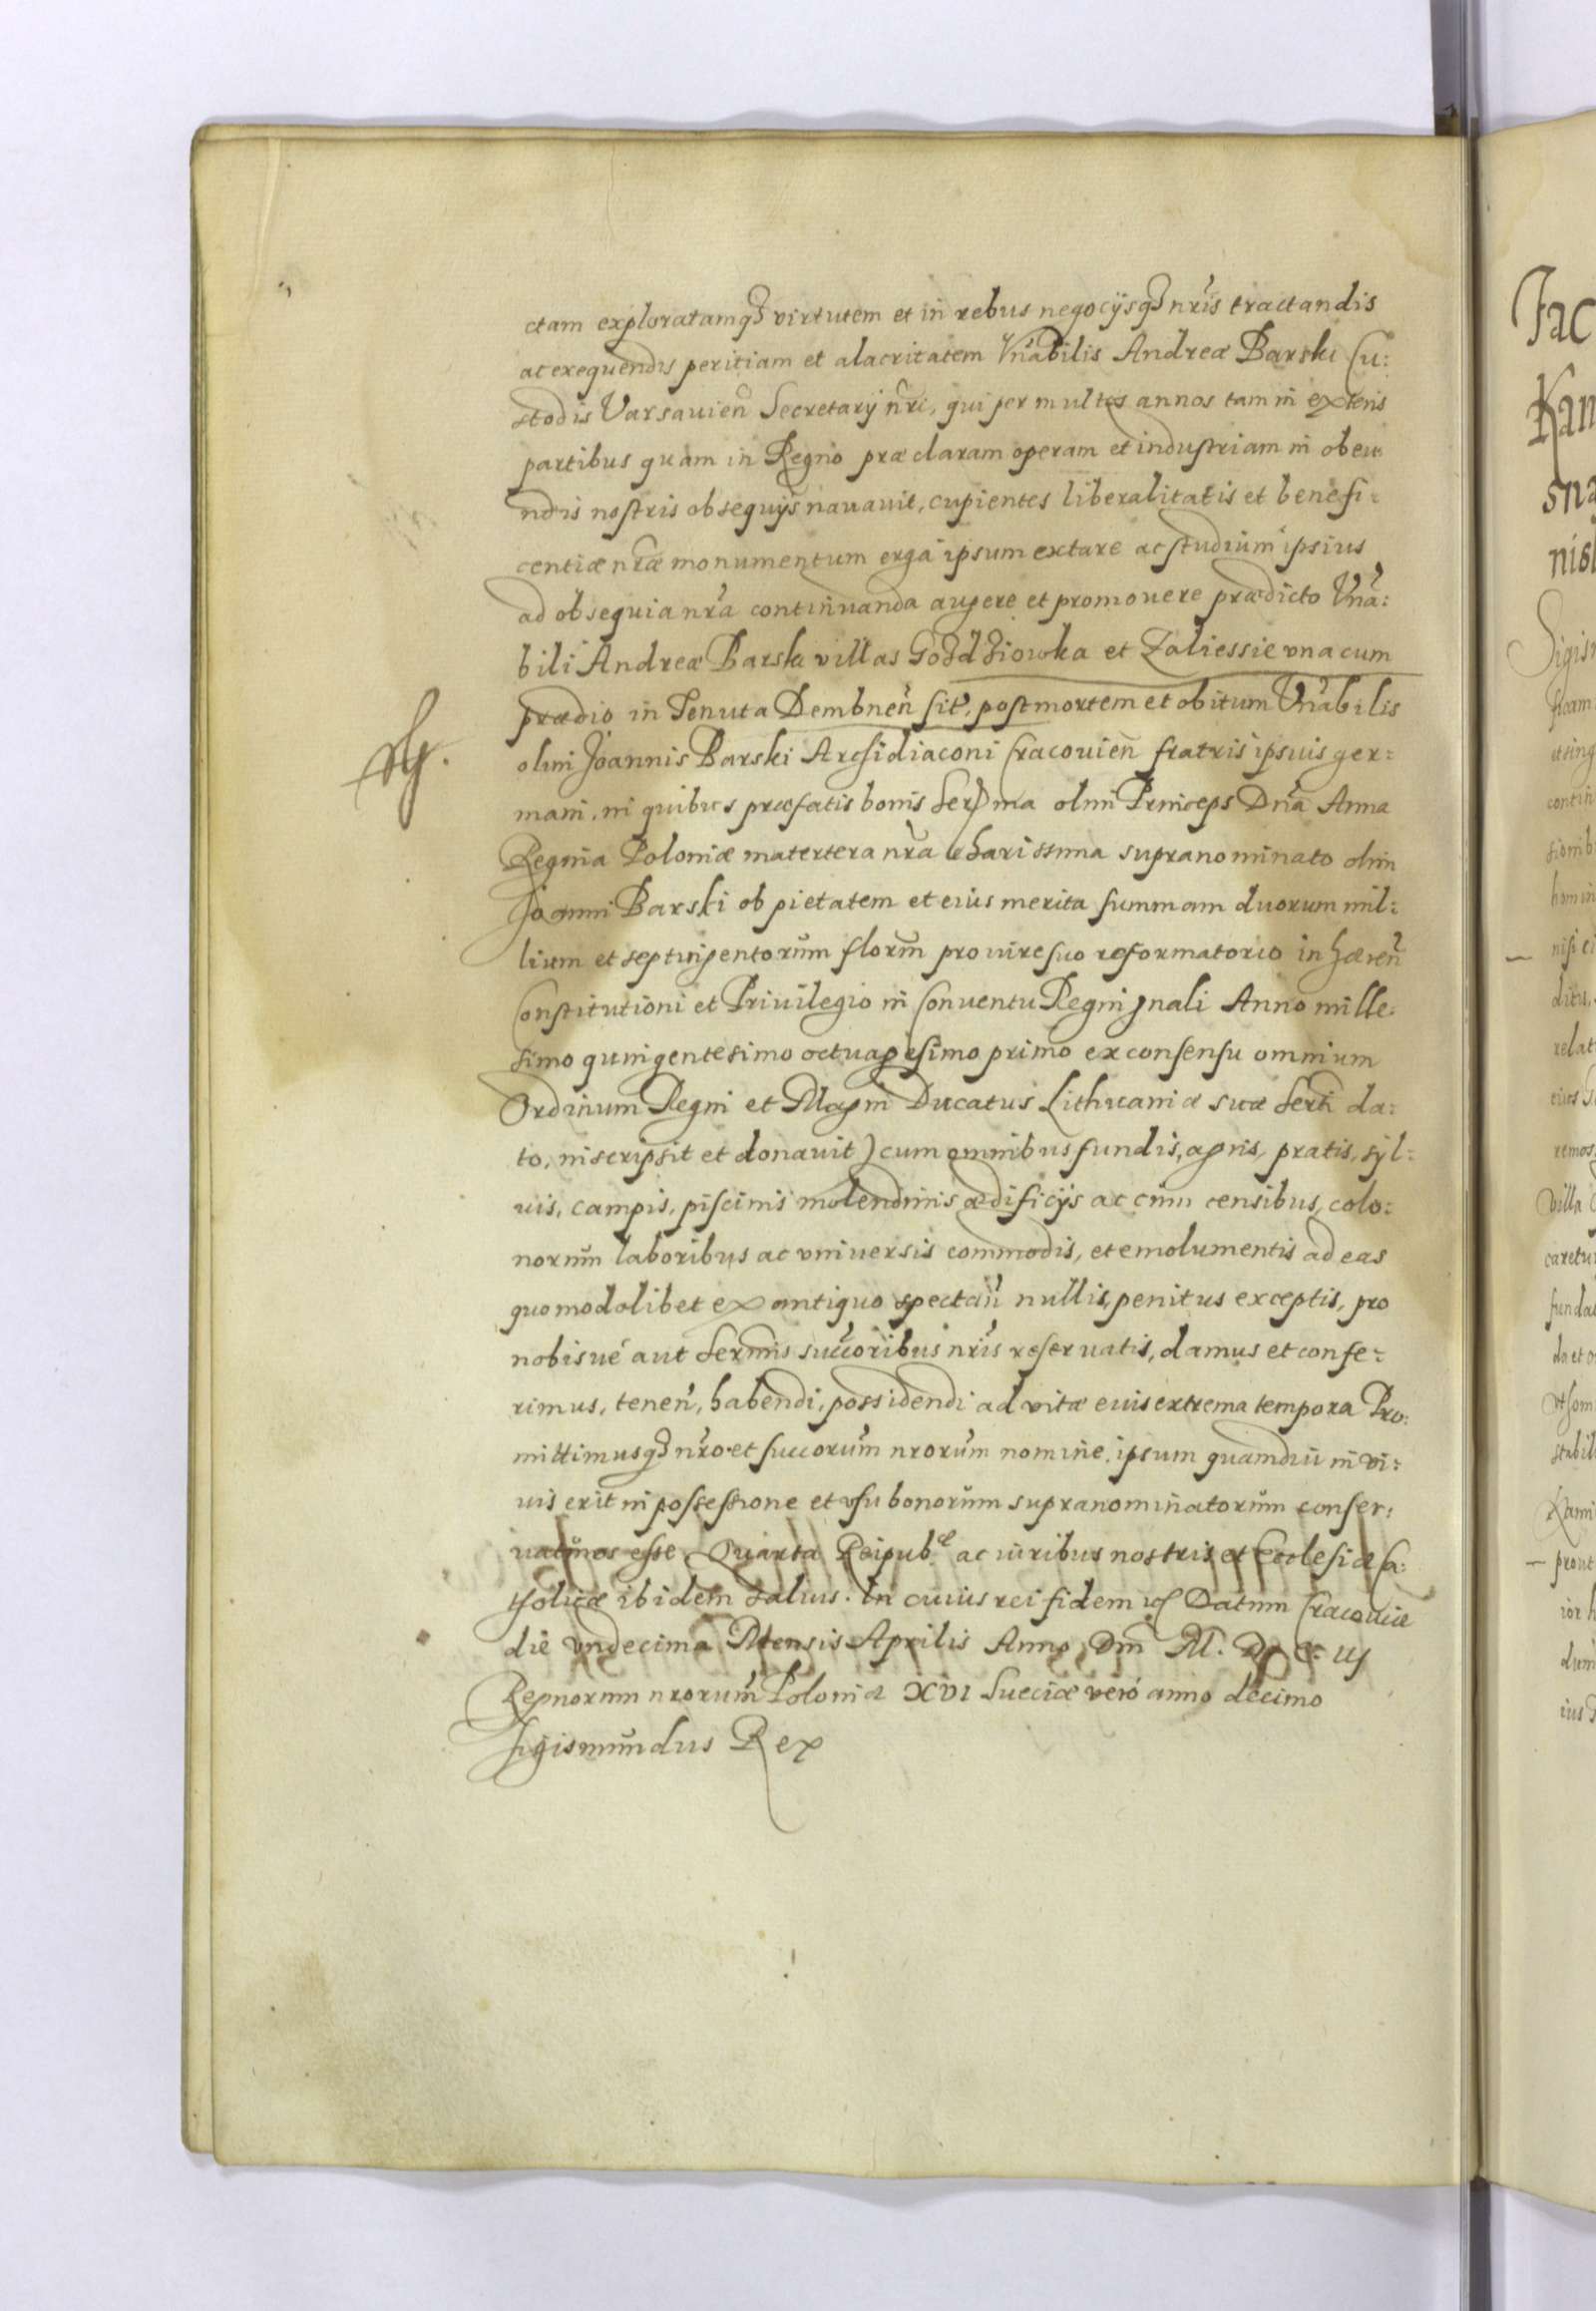 ctam exploratamqꝫ virtutem et in rebus negocijsqꝫ nr̃is tractandis
ac exequendis peritiam et alacritatem Vnãbilis Andreæ Barski Cu:
stodis Varsauien̄ Secretarij nr̃i, qui per multos annos tam in exteris
partibus quam in Regno præclaram operam et industriam in obeu
ndis nostris obsequijs nauauit, cupientes liberalitatis et benefi:
centiæ nr̃æ monumentum erga ipsum extare ac studium ipsius
ad obsequia nr̃a continuanda augere et promouere prædicto Vnã:
bili Andreæ Barski villas Gozdziowka et Zaliessie vna cum
prædio in Tenuta Dembnen̄ sit. post mortem et obitum Vnãbilis
olim Joannis Barski Archidiaconi Cracouien̄ fratris ipsius ger:
mani, in quibus præfatis bonis Ser̃ma olim Princeps Dn̄a Anna
Regina Poloniæ matertera nr̃a charissima supranominato olim
Joanni Barski ob pietatem et eius merita summam duorum mil:
lium et septingentorum floren̄ pro iure suo reformatorio in hæren̄
Constitutioni et Priuilegio in Conuentu Regni gn̄ali Anno mille:
simo quingentesimo octuagesimo primo ex consensu omnium
Ordinum Regni et Magni Ducatus Lithuaniæ suæ Serti da:
to, inscripsit et donauit) cum omnibus fundis, agris, pratis, syl:
uis, campis, piscinis molendinis ædificijs ac cum censibus, colo:
norum laboribus ac vniuersis commodis, et emolumentis ad eas
quomodolibet ex antiquo spectan̄ nullis, penitus exceptis, pro
nobisué aut Sermis succoribus nr̃is reseruatis, damus et confe:
rimus, tenen̄, habendi, possidendi ad vitæ euis extrema tempora Pro:
mittimusqꝫ nr̃o et succorum nrorum nomine. ipsum quamdiu in vi:
uis erit in possessione et vsu bonorum supranominatorum conser:
uaturos esse. Quarta Reipub. ac iuribus nostris et Ecclesiæ Ca:
tholicæ ibidem saluis. In cuius rei fidem Datum Cracouiæ
die vndecima Mensis Aprilis Anno Dni M. D. C. iij
Regnorum nrorum Poloniæ XVI Sueciæ veró anno decimo
Sigismundus Rex
Jac
Kam
sna
nisl